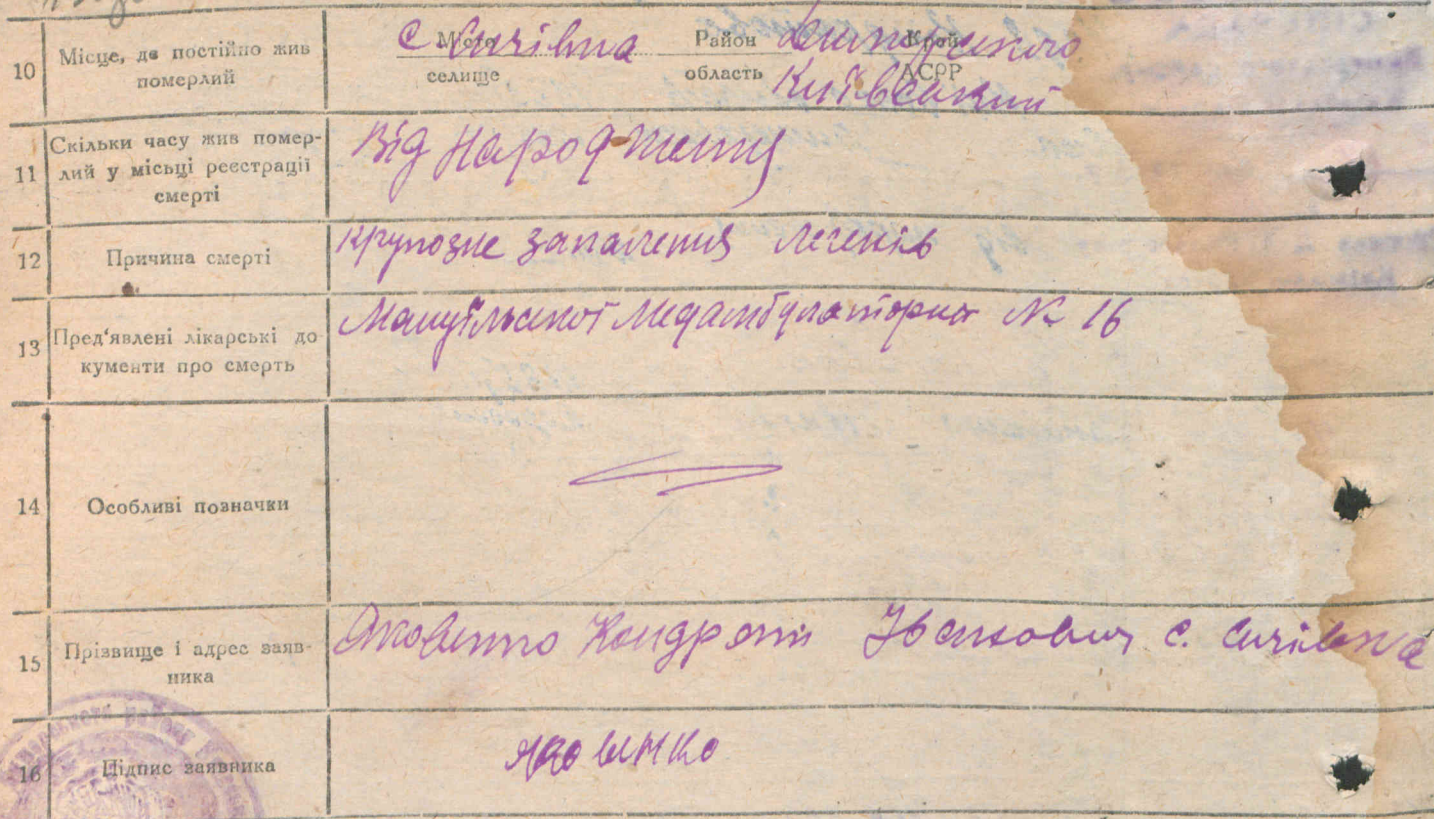 10 Місце, де постійно жив померлий
Місто селище Район область Край АСРР
с. Сичівка
Київський
11 Скільки часу жив помер-
лий у місьці реєстрації
смерті
Від народження
12 Причина смерті
крупозне запалення легенів
13 Пред'явлені лікарські до
кументи про смерть
№ 16
14 Особливі позначки
15 Прізвище і адрес заяв-
ника
Яковенко Кондрат Іванович с. Сичівка
16 Підпис заявника
Яковенко